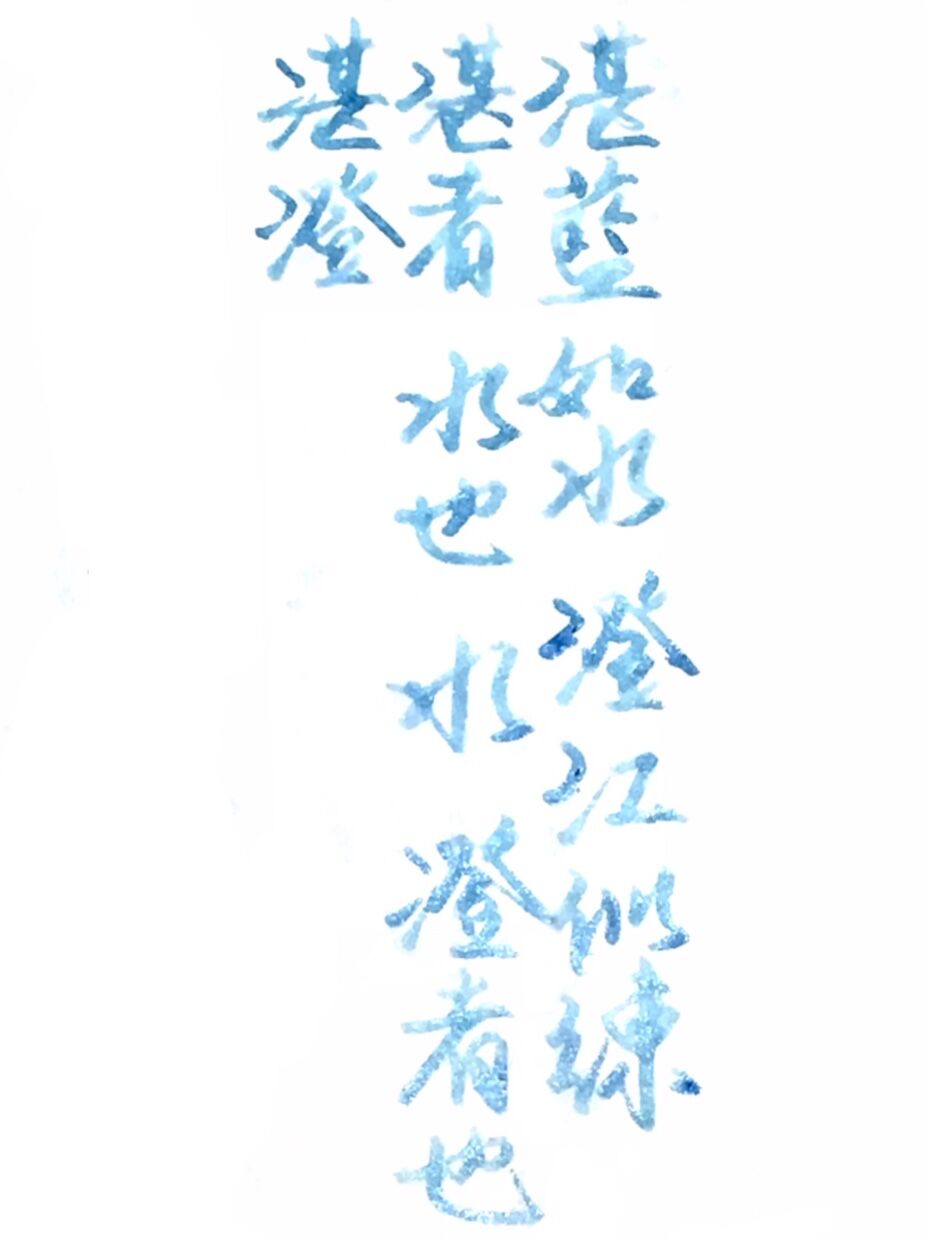 湛藍如水澄江似練
湛者水也水澄者也
湛澄